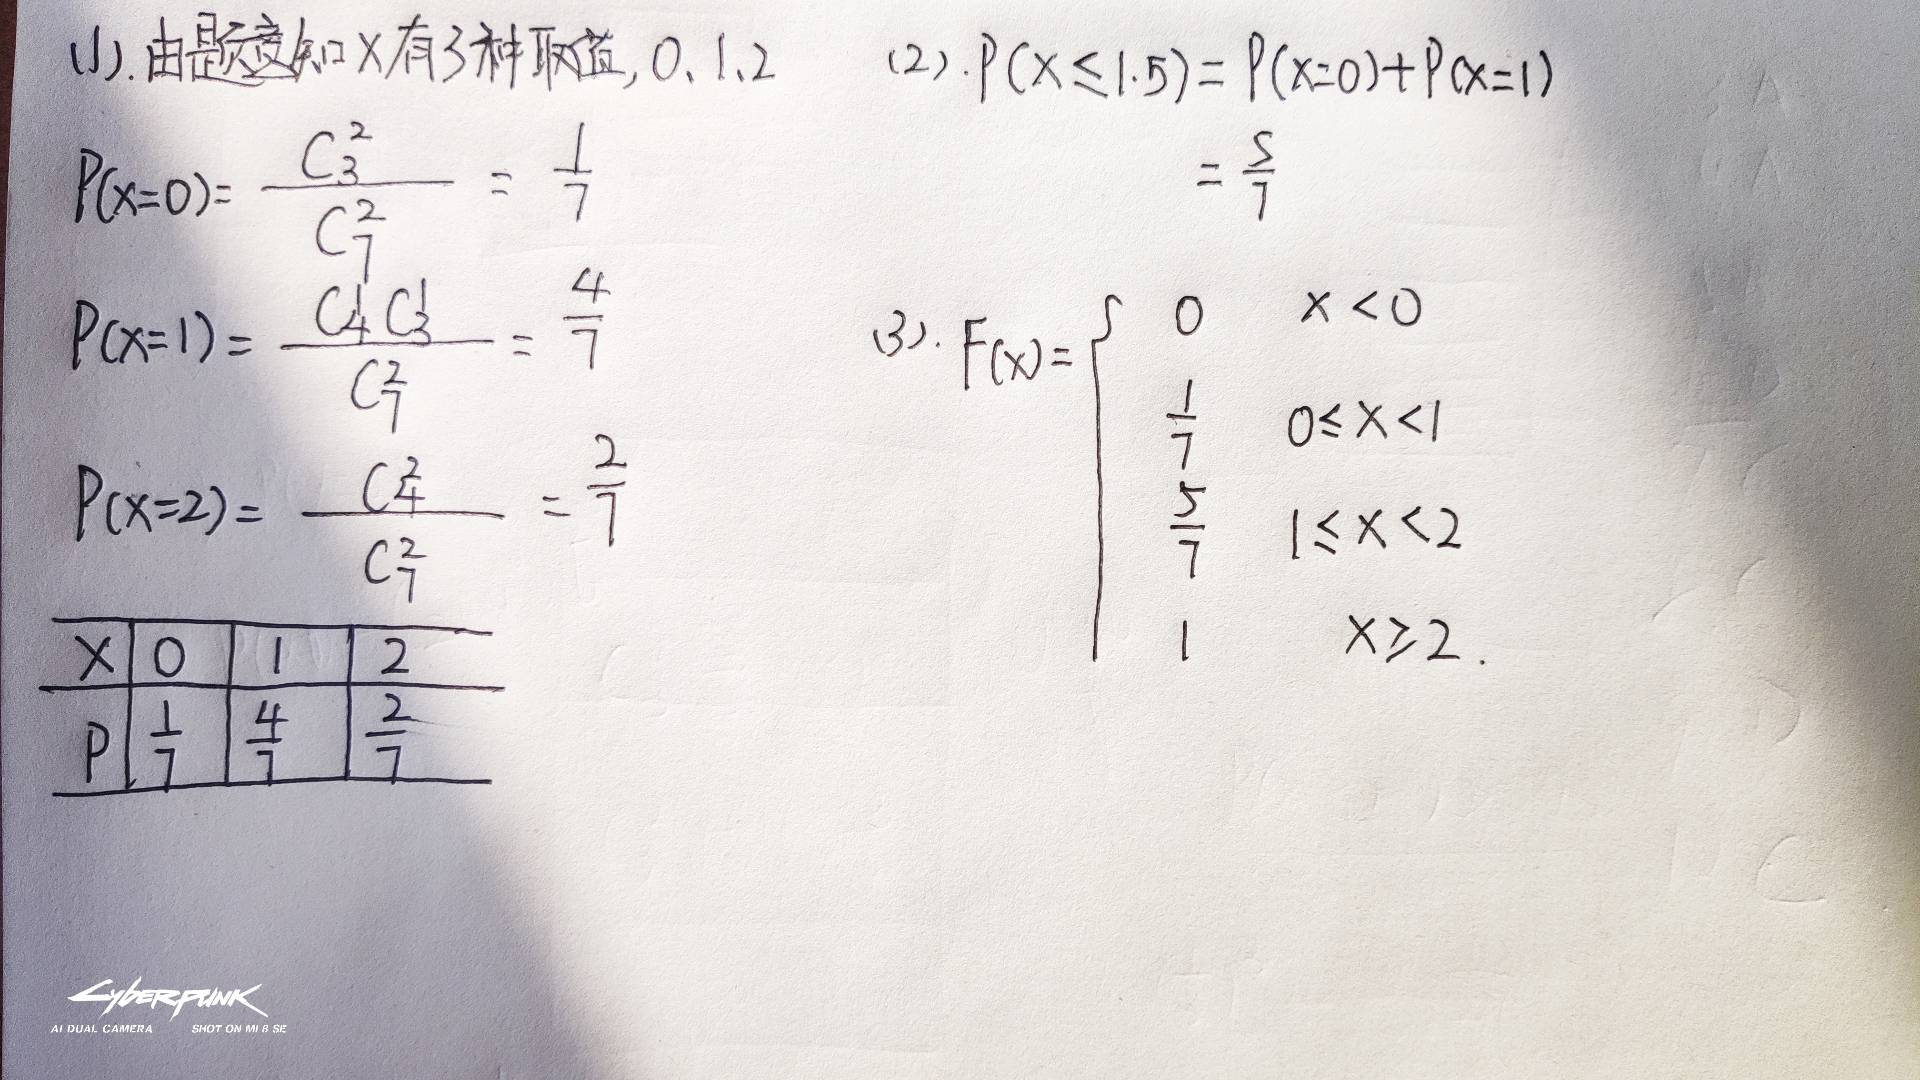 (1). 由题意知X有3种取值, 0、1、2
P(X=0)= C₃² / C₇² = 1/7
P(X=1)= C₄¹ C₃¹ / C₇² = 4/7
P(X=2)= C₄² / C₇² = 2/7
X 0 1 2
P 1/7 4/7 2/7
(2). P(X≤1.5)= P(X=0)+P(X=1)
= 5/7
(3). F(x)= {
0 x<0
1/7 0≤x<1
5/7 1≤x<2
1 x≥2.
CYBERPUNK
AI DUAL CAMERA SHOT ON MI 8 SE